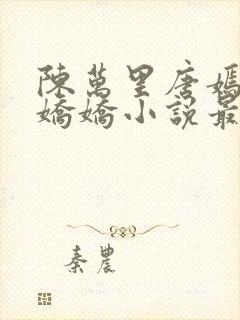 陳萬里唐嫣
嬌嬌小說最
秦農